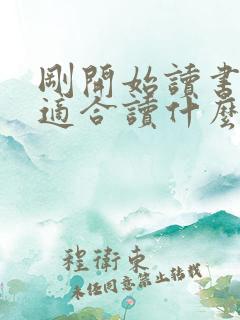 剛開始讀書
適合讀什麼
程衛東
未經同意禁止轉載